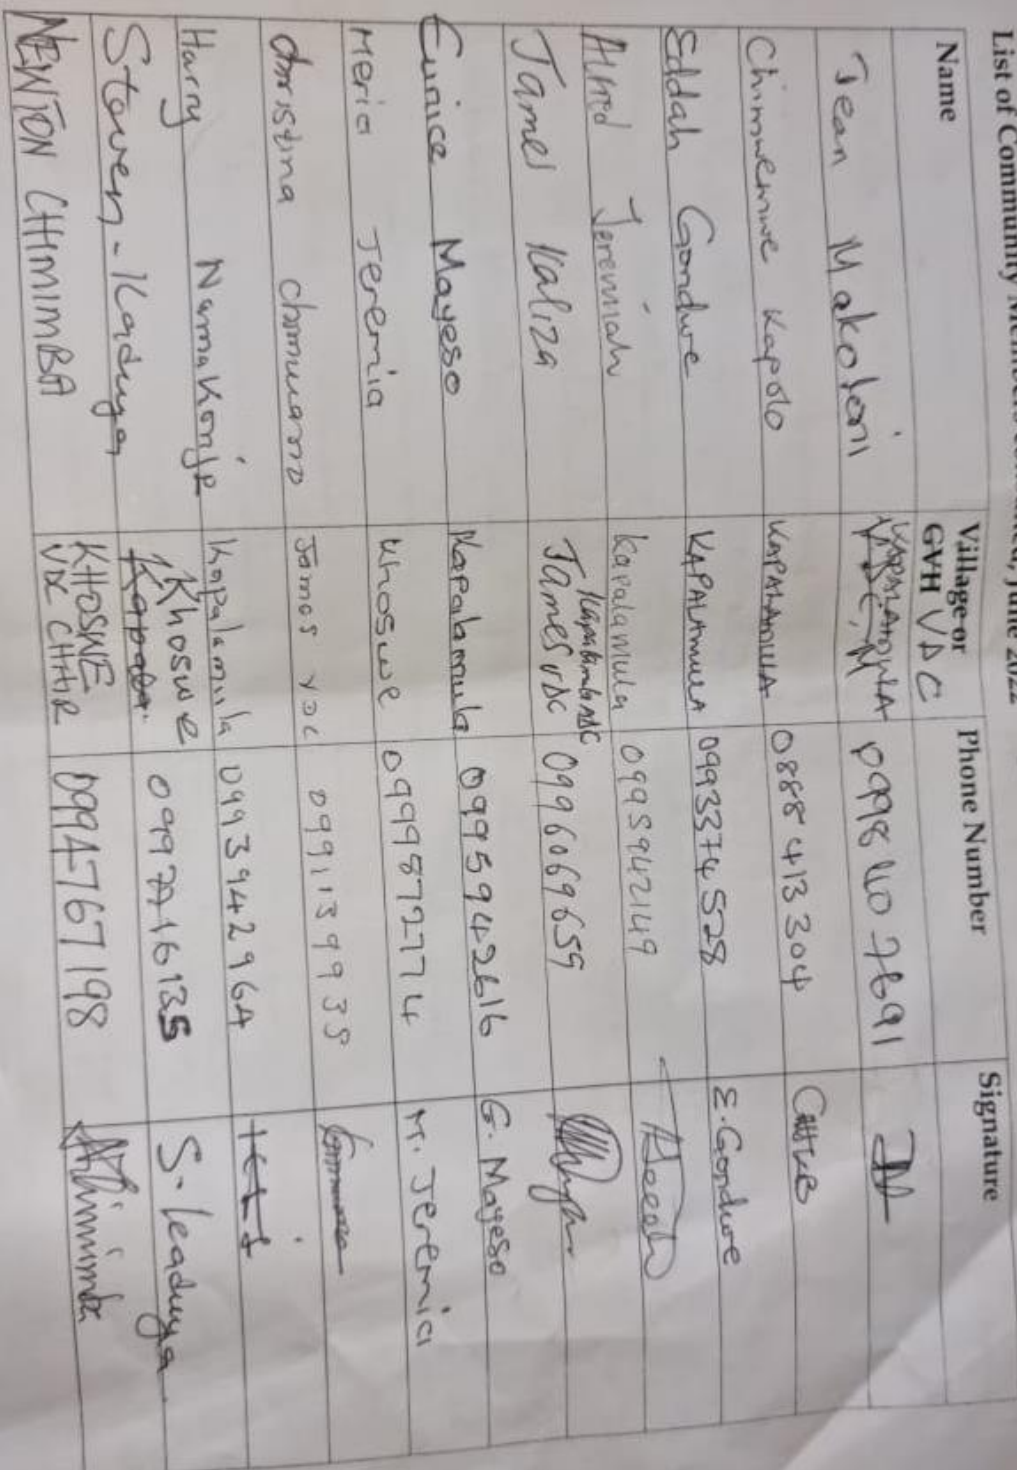 List of Community Members Consulted, June 2022
Name Village or GVH VDC Phone Number Signature
Jean Makoloni KAPALAMULA 0998 407691
Chimwemwe Kapolo KAPALAMULA 0888 413 304
Eddah Gondwe KAPALAMULA 0993374528 E. Gondwe
Alfred Jeremiah Kapalamula 0995942149
James Kaliza James VDC 0996069659
Eunice Mayeso Kapalamula 0995942616 G. Mayeso
Meria Jeremia Khoswe 0999872774 M. Jeremia
James VDC 0991139935
Harry Namakonje Kapalamula 0993942964
Steven-Kadunga Khoswe
NEWTON CHIMIMBA KHOSWE VDC CHAIR 0994767198